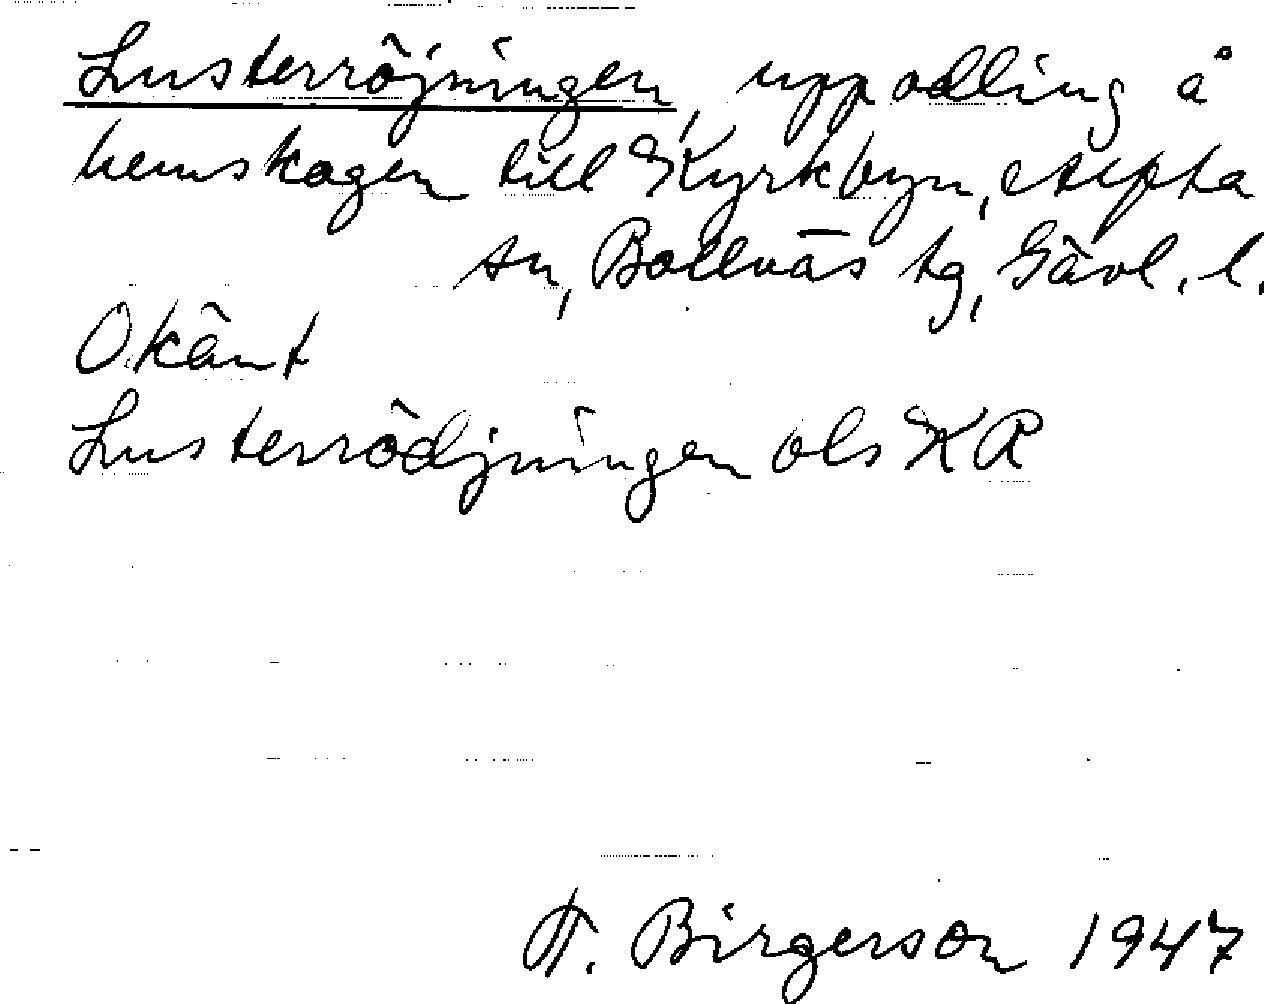 Lusterröjningen, uppodling å
hemskogen till Kyrkbyn, Alfta
sn, Bollnäs tg, Gävl. l.
Okänt
Lusterrödjningen ols KR
H. Birgerson 1947